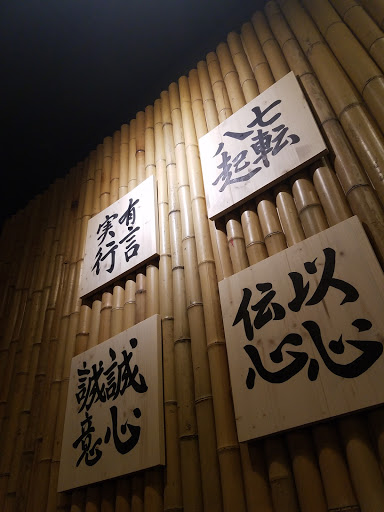 七転
八起
有言
実行
以心
伝心
誠心
誠意